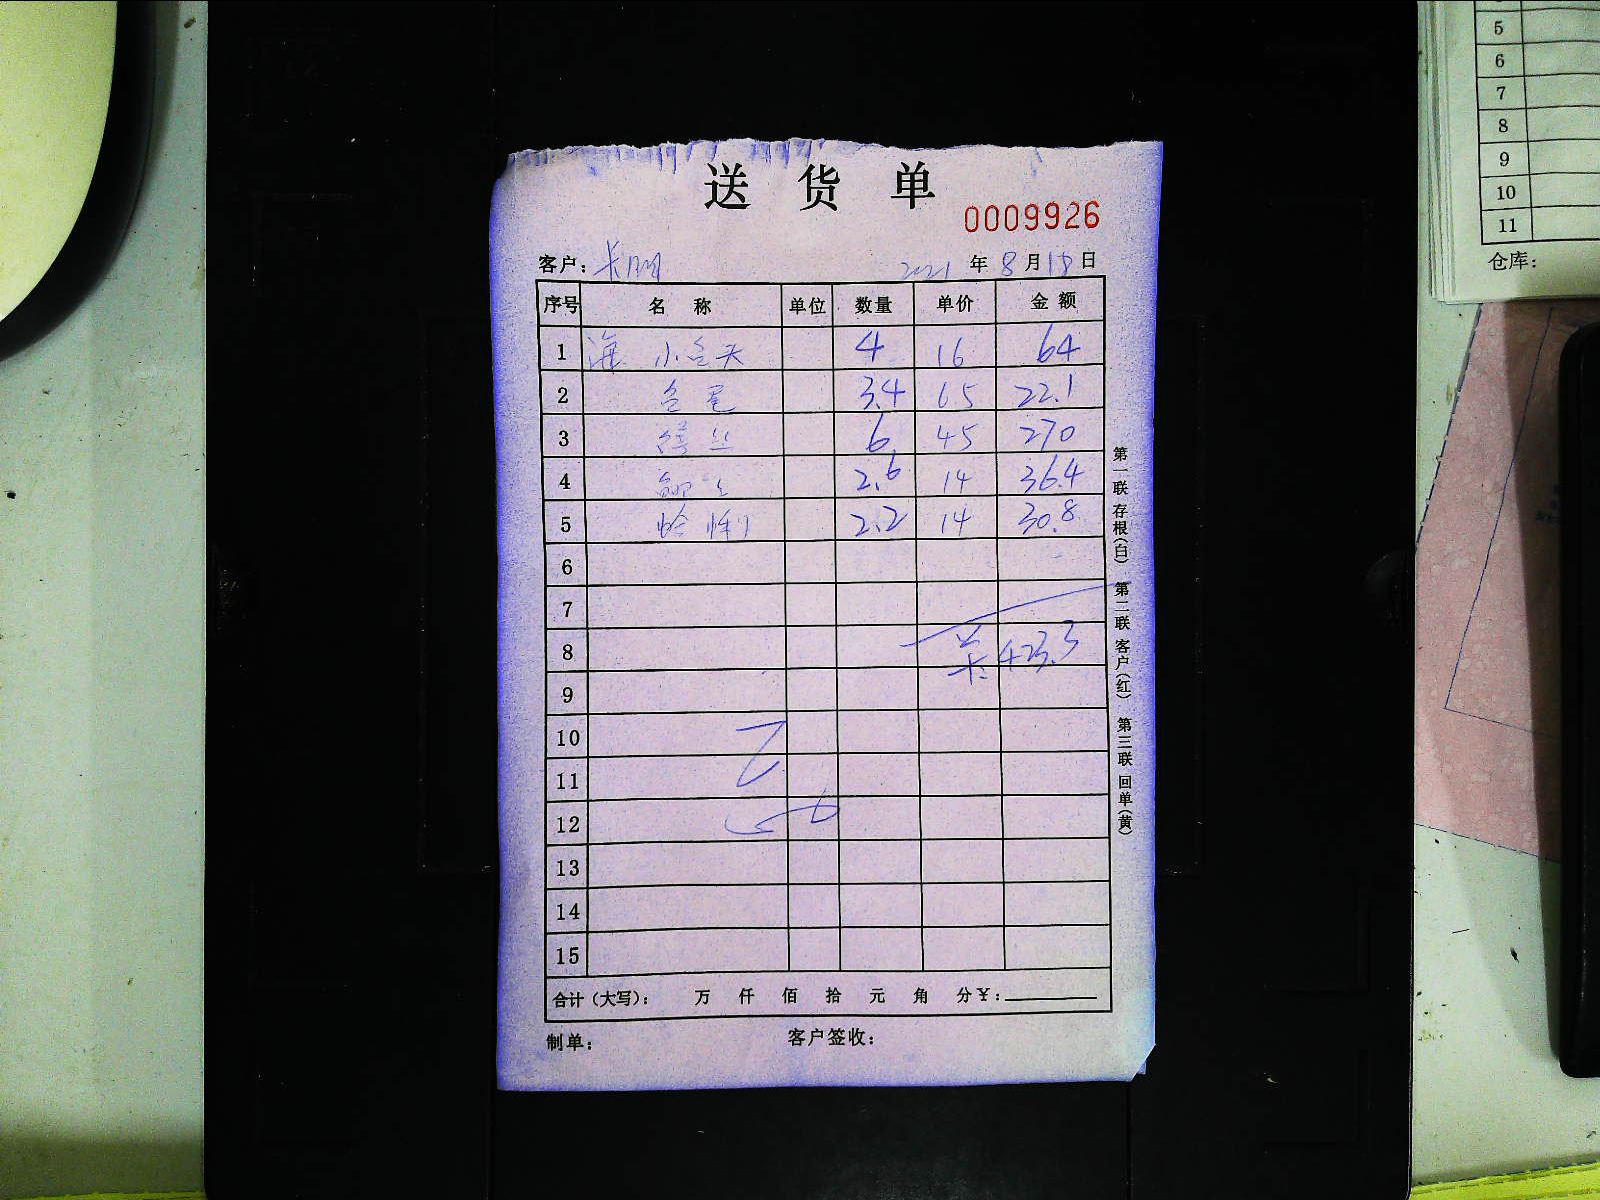 送货单
0009926
客户： 2021 年 8 月 18 日
序号 名称 单位 数量 单价 金额
1 海 小 4 16 64
2 3.4 65 22.1
3 6 45 270
4 2.6 14 36.4
5 2.2 14 30.8
6
7
8 423.3
9
10
11
12
13
14
15
合计（大写）： 万 仟 佰 拾 元 角 分￥：
制单： 客户签收：
第一联 存根（白） 第二联 客户（红） 第三联 回单（黄）
5
6
7
8
9
10
11
仓库：